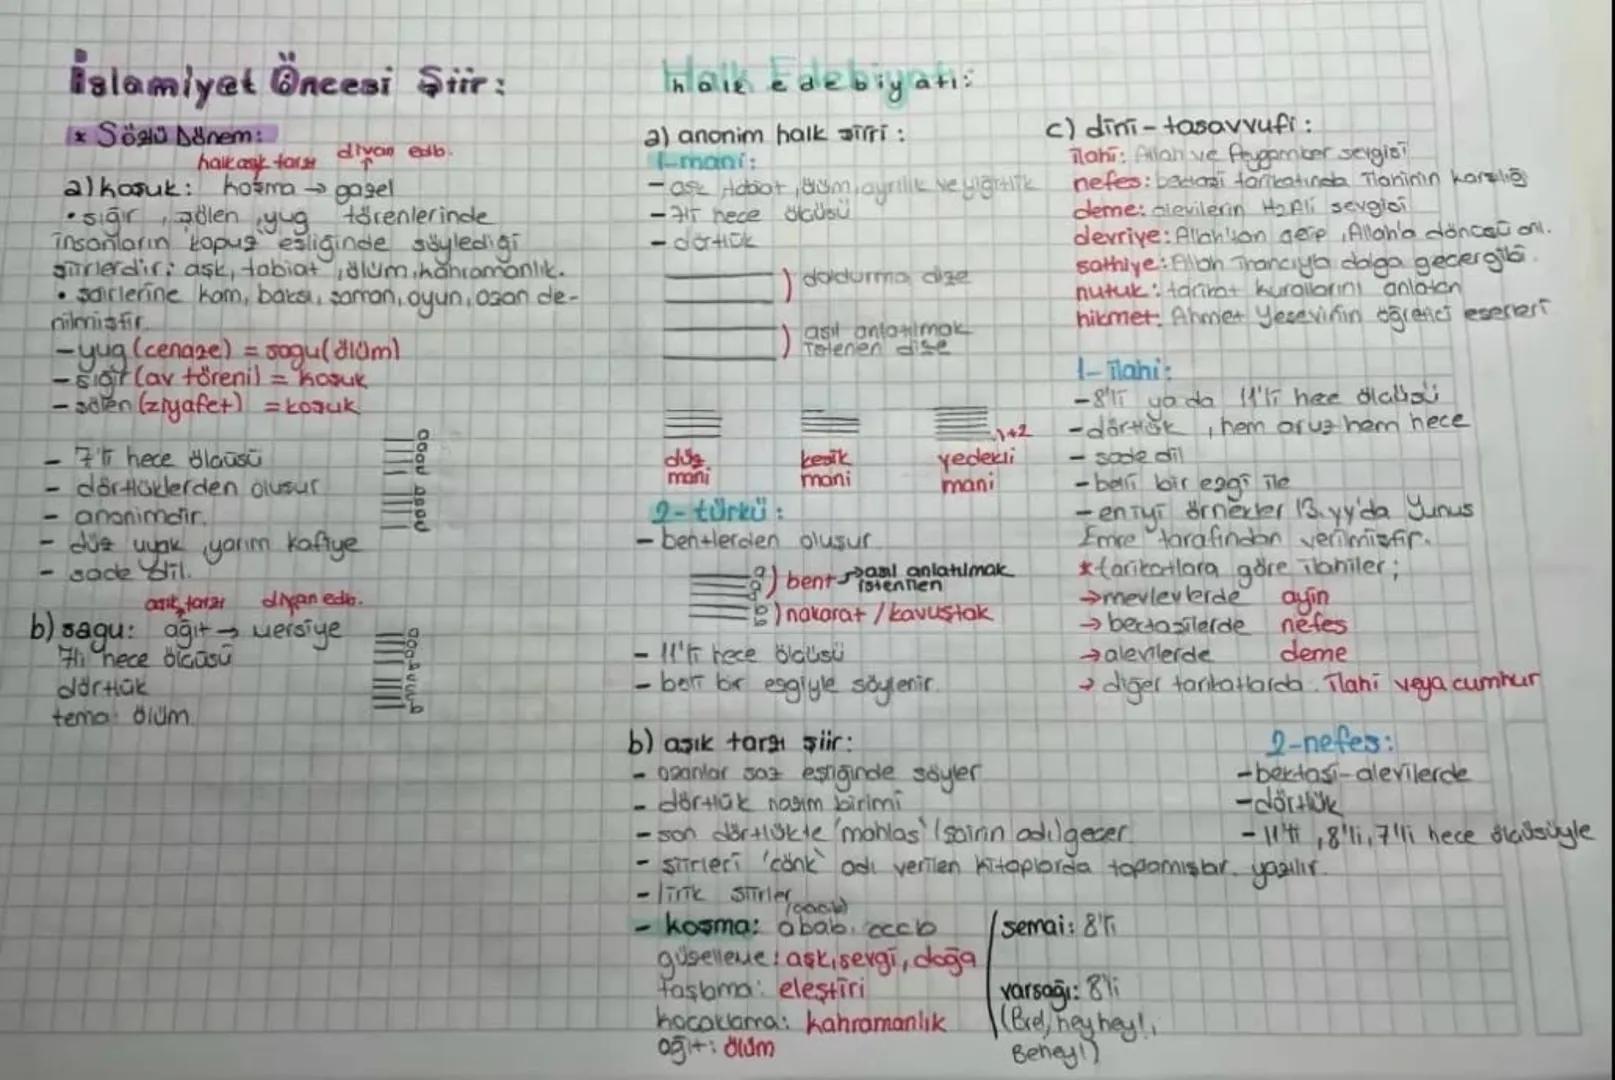 İslamiyet Öncesi Şiir:
* Sözlü Dönem:
halk aşk tarzı divan edb.
a) koşuk: koşma → gazel
• sığır, şölen, yuğ törenlerinde
insanların kopuz eşliğinde söylediği
şiirlerdir: aşk, tabiat, ölüm, kahramanlık.
• şairlerine kam, baksı, şaman, oyun, ozan de-
nilmiştir.
- yuğ (cenaze) = sagu (ölüm)
- sığır (av töreni) = koşuk
- şölen (ziyafet) = koşuk
- 7'li hece ölçüsü
- dörtlüklerden oluşur
- anonimdir.
- düz uyak, yarım kafiye
- sade dil.
aşık tarzı divan edb.
b) sagu: ağıt → mersiye
7li hece ölçüsü
dörtlük
tema: ölüm
Halk Edebiyatı:
a) anonim halk şiiri:
1-mani:
- aşk, tabiat, ölüm, ayrılık ve yiğitlik
- 7li hece ölçüsü
- dörtlük
) doldurma dize
) asıl anlatılmak
istenen dize
+2
düz kesik yedekli
mani mani mani
2- türkü:
- bentlerden oluşur
a
a ) bent → asıl anlatılmak
a istenilen
b
b ) nakarat / kavuştak
- 11'li hece ölçüsü
- belli bir ezgiyle söylenir.
b) aşık tarzı şiir:
- ozanlar saz eşliğinde söyler
- dörtlük nazım birimi
- son dörtlükte 'mahlas' (şairin adı) geçer
- şiirleri 'cönk' adı verilen kitaplarda toplamışlar. yazılır.
- lirik şiirler
- koşma: abab, cccb
güzelleme: aşk, sevgi, doğa
taşlama: eleştiri
koçaklama: kahramanlık
ağıt: ölüm
semai: 8'li
varsağı: 8'li
(Bre!, hey hey!,
Behey!)
c) dini - tasavvufi:
ilahi: Allah ve Peygamber sevgisi
nefes: bektaşi tarikatında ilahinin karşılığı
deme: alevilerin Hz Ali sevgisi
devriye: Allah'tan gelip, Allah'a döncesü anl.
sathiye: Allah inancıyla dalga geçer gibi.
nutuk: tarikat kurallarını anlatan
hikmet: Ahmet Yesevi'nin öğretici eserleri
1- ilahi:
- 8'li ya da 11'li hece ölçüsü
- dörtlük, hem aruz hem hece
- sade dil
- belli bir ezgi ile
- en iyi örnekler 13. yy'da Yunus
Emre tarafından verilmiştir.
* tarikatlara göre ilahiler;
→ mevlevlerde ayin
→ bektaşilerde nefes
→ alevilerde deme
→ diğer tarikatlarda ilahi veya cumhur
2-nefes:
- bektaşi - alevilerde
- dörtlük
- 11'li, 8'li, 7'li hece ölçüsüyle